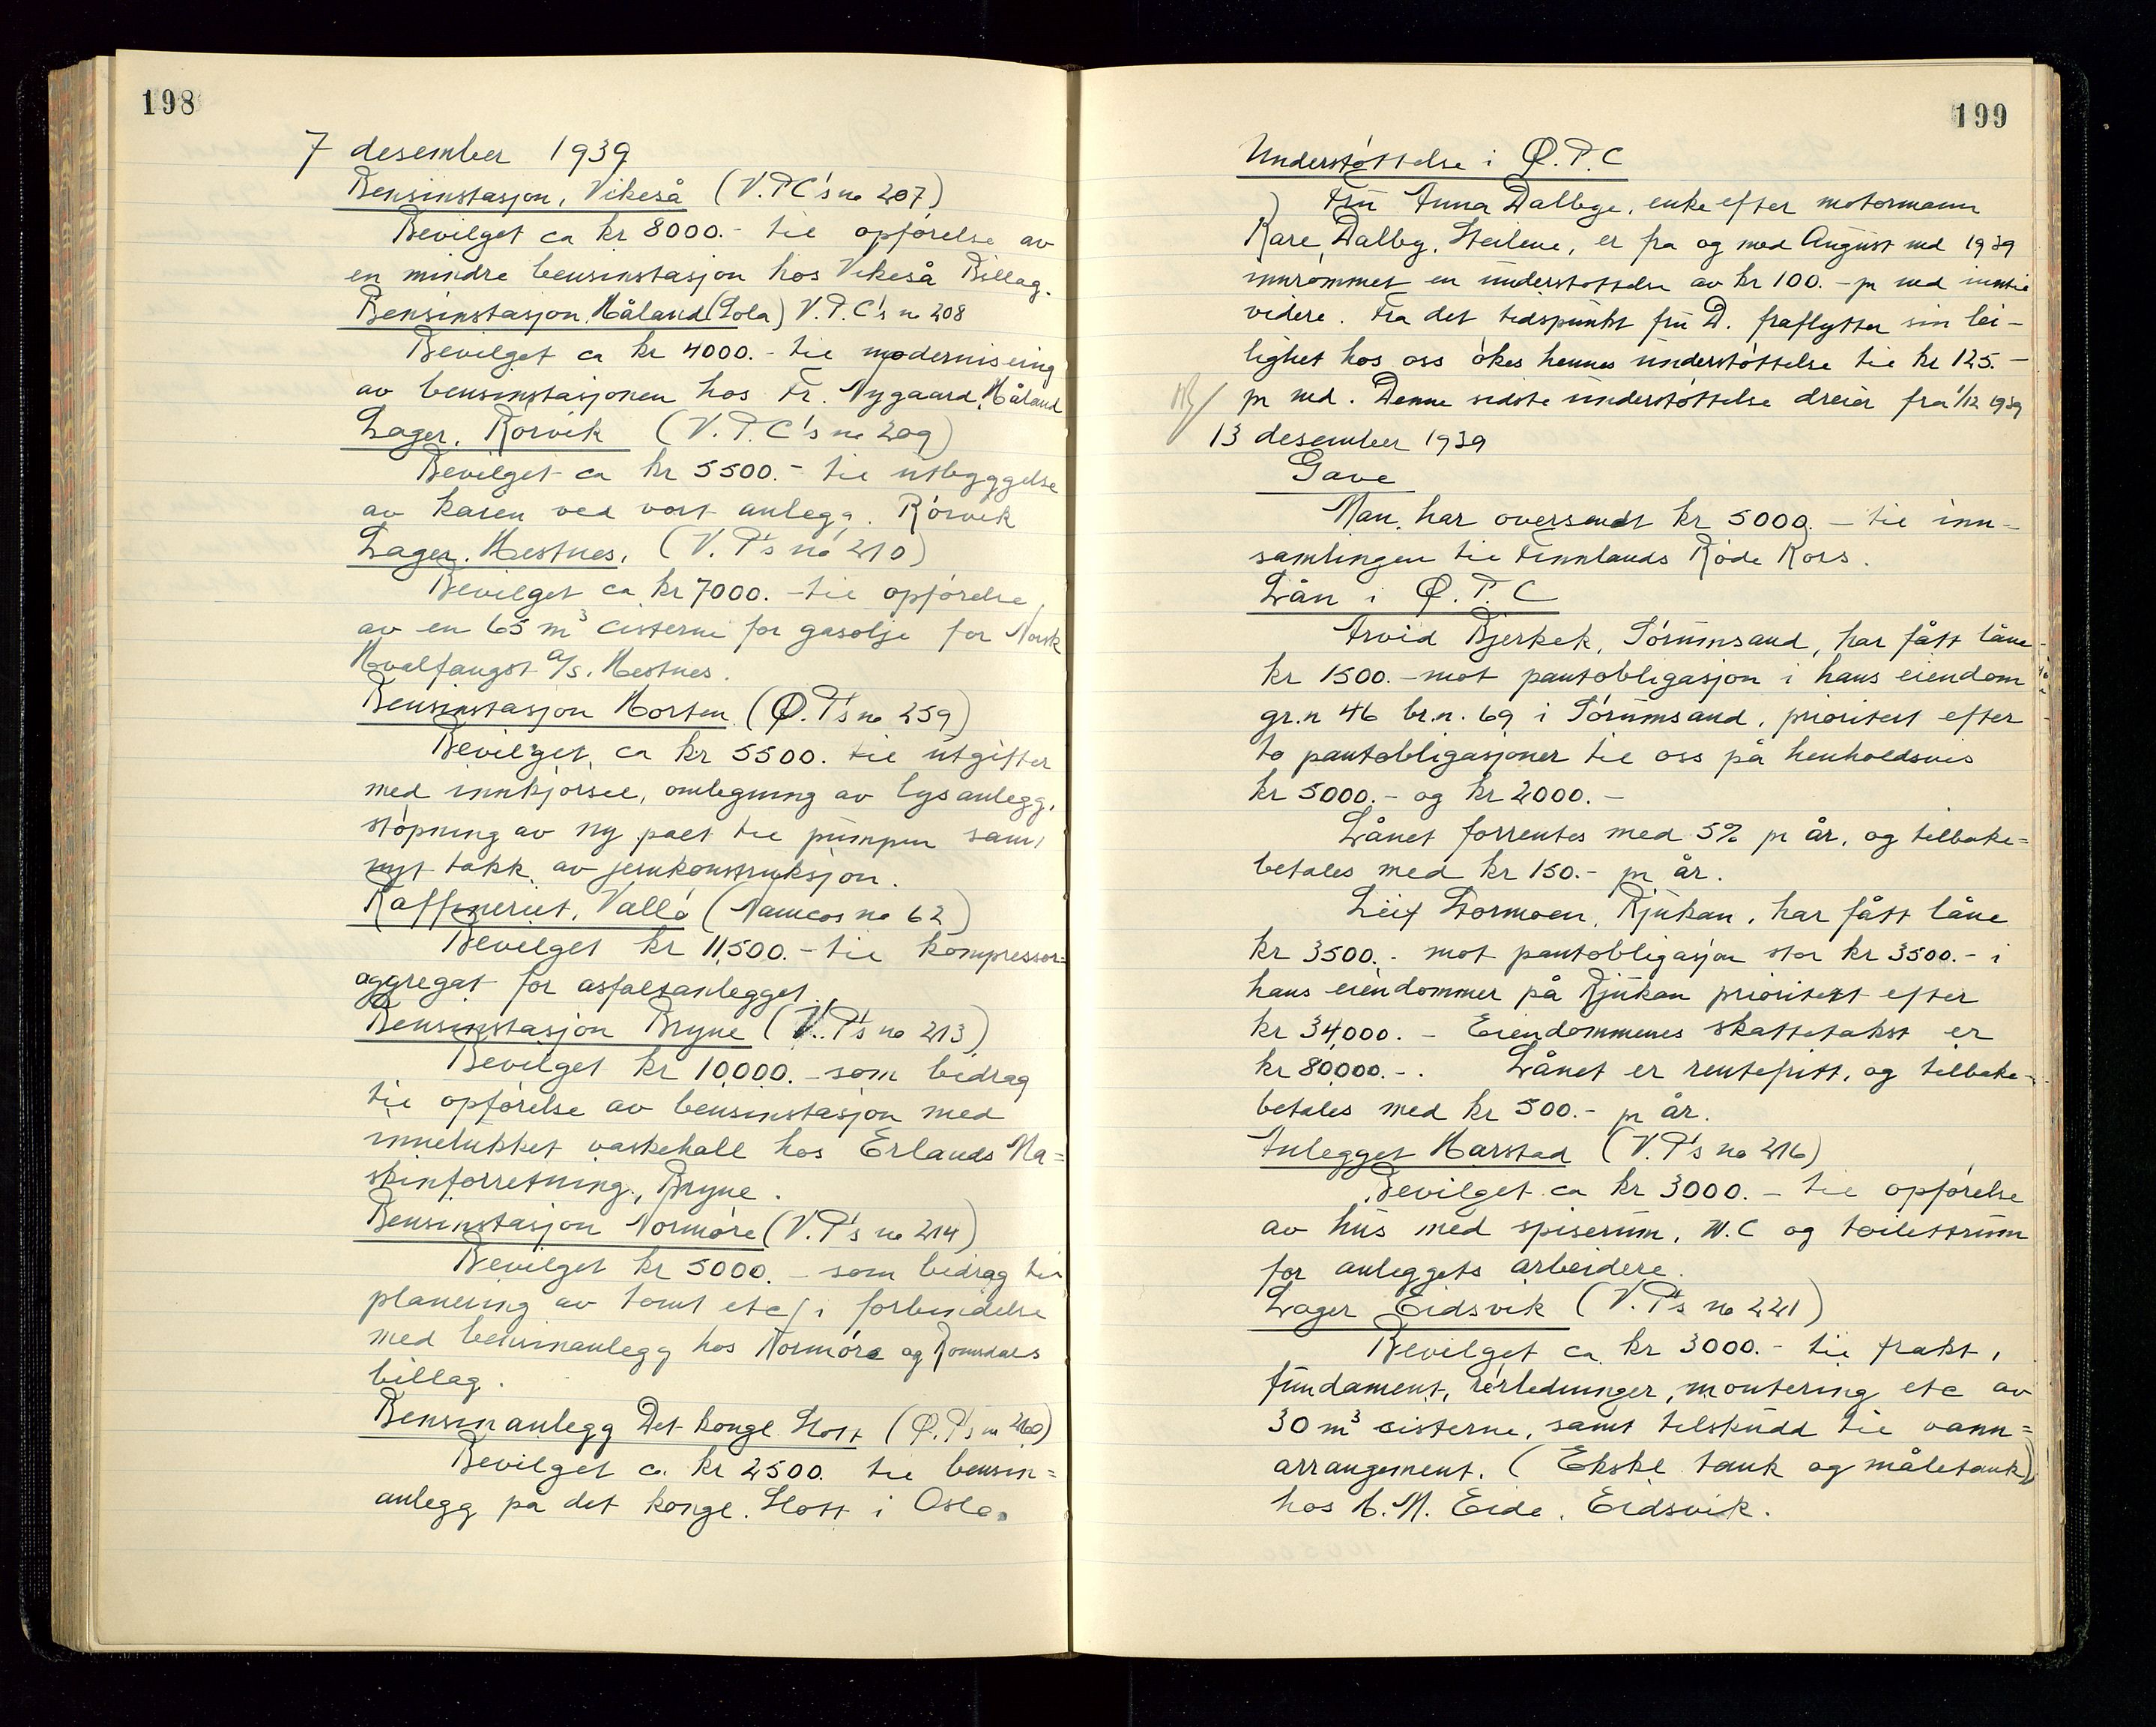 198
7 desember 1939
Bensinstasjon, Vikeså (V.P.C's no 207)
Bevilget ca kr 8000.- til opførelse av
en mindre bensinstasjon hos Vikeså Billag.
Bensinstasjon Håland (Sola) V.P.C's no 208
Bevilget ca kr 4000.- til modernisering
av bensinstasjonen hos Fr. Nygaard, Håland
Lager. Rørvik (V.P.C's no 209)
Bevilget ca kr 5500.- til utbyggelse
av kaien ved vort anlegg. Rørvik
Lager. Hestnes. (V.P's no 210)
Bevilget ca kr 7000.- til opførelse
av en 65 m³ cisterne for gasolje for Norsk
Hvalfangst a/s. Hestnes.
Bensinstasjon Horten (Ø.P's no 259)
Bevilget ca kr 5500. til utgifter
med innkjørsel, omlegning av lysanlegg,
støpning av ny palt til pumpen samt
nyt takk av jernkonstruksjon.
Raffineriet, Vallø (Namcos no 62)
Bevilget kr 11,500.- til kompressor=
aggregat for asfaltanlegget.
Bensinstasjon Bryne (V.P's no 213)
Bevilget kr 10,000.- som bidrag
til opførelse av bensinstasjon med
innelukket vaskehall hos Erlands Ma=
skinforretning, Bryne.
Bensinstasjon Normøre (V.P's no 214)
Bevilget kr 5000.- som bidrag til
planering av tomt etc i forbindelse
med bensinanlegg hos Normøre og Romsdals
billag.
Bensinanlegg Det kongl. Slott (Ø.P's no 260)
Bevilget ca kr 2500. til bensin=
anlegg på det kongl. Slott i Oslo.
199
Understøttelse i Ø.P.C
Fru Anna Dalbye, enke efter motormann
Kare Dalby, Steilene, er fra og med August md 1939
innrømmet en understøttelse av kr 100.- pr md inntil
videre. Fra det tidspunkt fru D. fraflytter sin lei-
lighet hos oss økes hennes understøttelse til kr 125.-
pr md. Denne sidste understøttelse dreier fra 1/12 1939
13 desember 1939
Gave
Man har oversendt kr 5000.- til inn=
samlingen til Finnlands Røde Kors.
Lån i Ø.P.C
Arvid Bjerkek, Sørumsand, har fått låne
kr 1500.- mot pantobligasjon i hans eiendom
gr.n 46 br.n. 69 i Sørumsand, prioritert efter
to pantobligasjoner til oss på henholdsvis
kr 5000.- og kr 2000.-
Lånet forrentes med 5% pr år, og tilbake=
betales med kr 150.- pr år.
Leif Stormoen, Rjukan, har fått låne
kr 3500.- mot pantobligasjon stor kr 3500.- i
hans eiendommer på Rjukan prioritert efter
kr 34,000.- Eiendommenes skattetakst er
kr 80,000.-. Lånet er rentefritt, og tilbake-
betales med kr 500.- pr år.
Anlegget Harstad (V.P's no 216)
Bevilget ca kr 3000.- til opførelse
av hus med spiserum, W.C og toilettrum
for anleggets arbeidere.
Lager Eidsvik (V.P's no 221)
Bevilget ca kr 3000.- til frakt,
fundament, rørledninger, montering etc av
30 m³ cisterne, samt tilskudd til vann=
arrangement. (Ekskl tank og måletank)
hos M. Eide, Eidsvik.